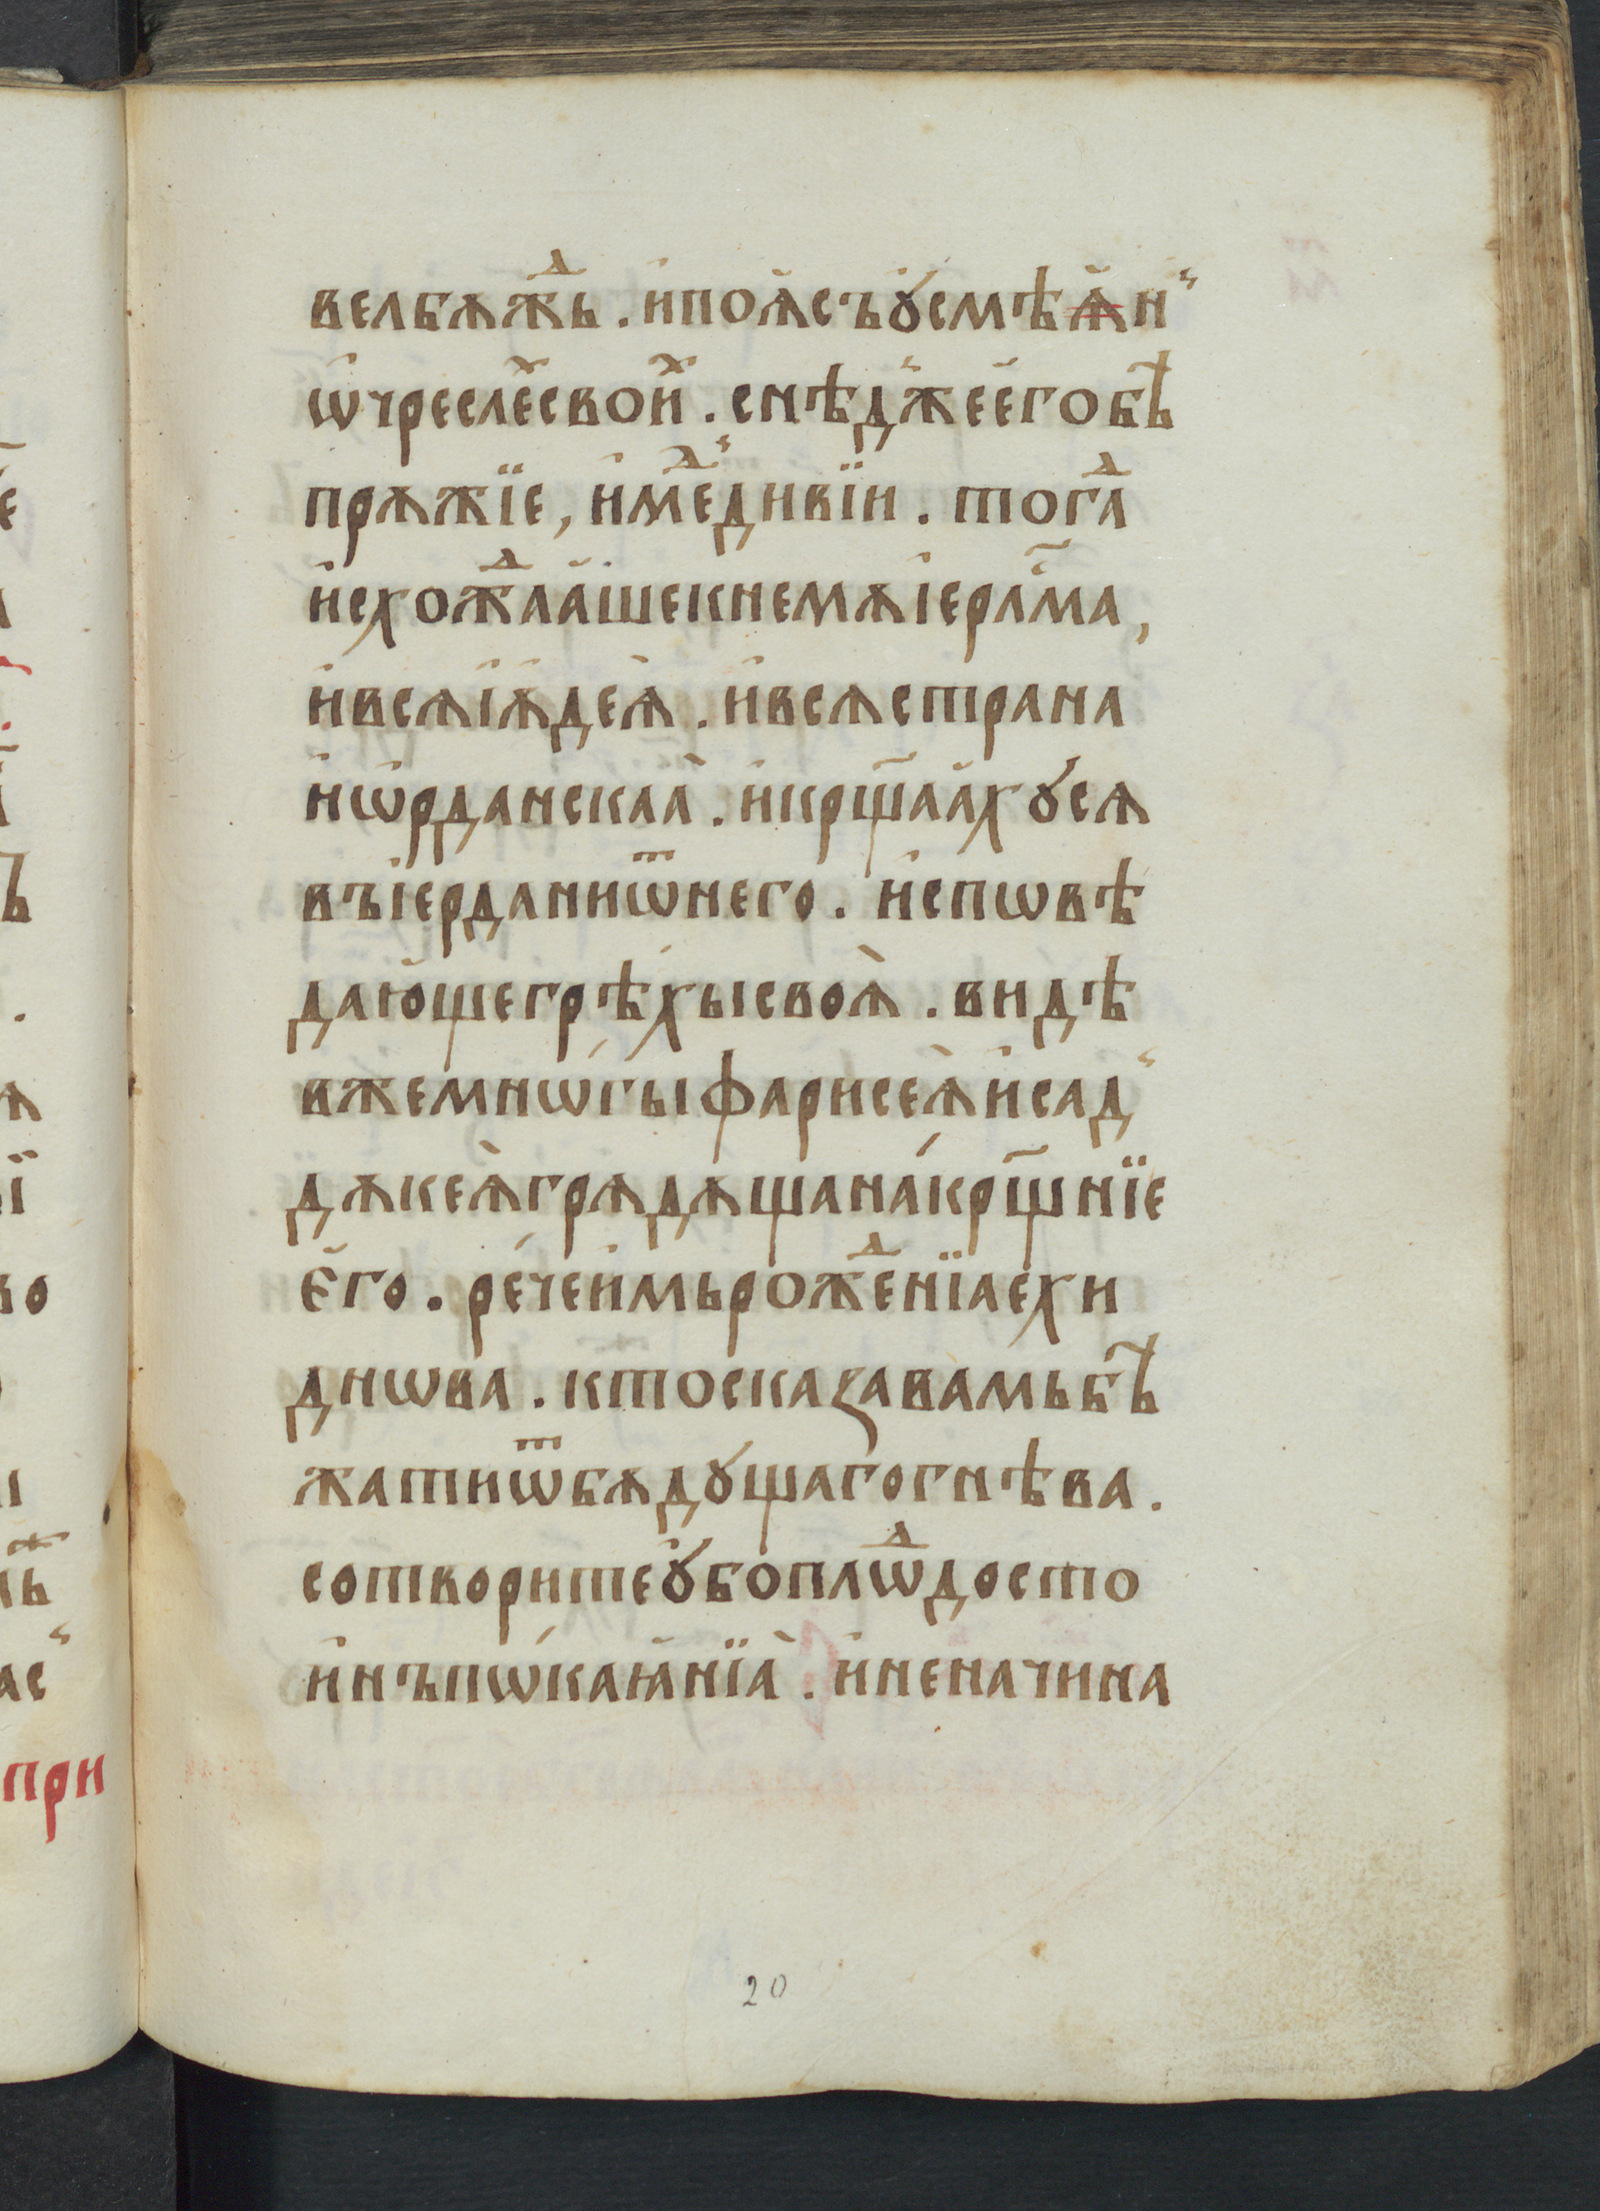 велбѫжⷣь . и҆поѧ҆съꙋ҆смѣѧ҆н
ѡ҆чреслеⷯ҇свои҆ⷯ . снѣдⸯже́е҆гобѣ҆
прѫжїе , и҆меⷣⸯдивїи . тогⷣа
и҆схожⷣаа҆шекнемѫі҆ерл҃ма ,
и҆всѧі҆ѫ҆деѧ̀ . и҆всѧстрана
иѡ҆рданскаа̀ . и҆крщ҃аа҆хꙋсѧ
въі҆ерданиѿнего . и҆спѡвѣ
даю҆щегрѣхысвоѧ̀ . видѣ
вжемнѡ́гы́фарисеѧ̀и҆садⸯ
дѫкеѧ̀грѧдѫщана́крщ҃нїе
е҆го . ре́чеи҆мьрожⷣенїаехи
днѡва . ктосказавамьбѣ҆
жатиѿбѫдꙋщагогнѣва .
сотворитеꙋ҆бо́плѡⷣдосто
и҆нъпѡ́каꙗ҆нїа̀ . и҆неначина
при
20